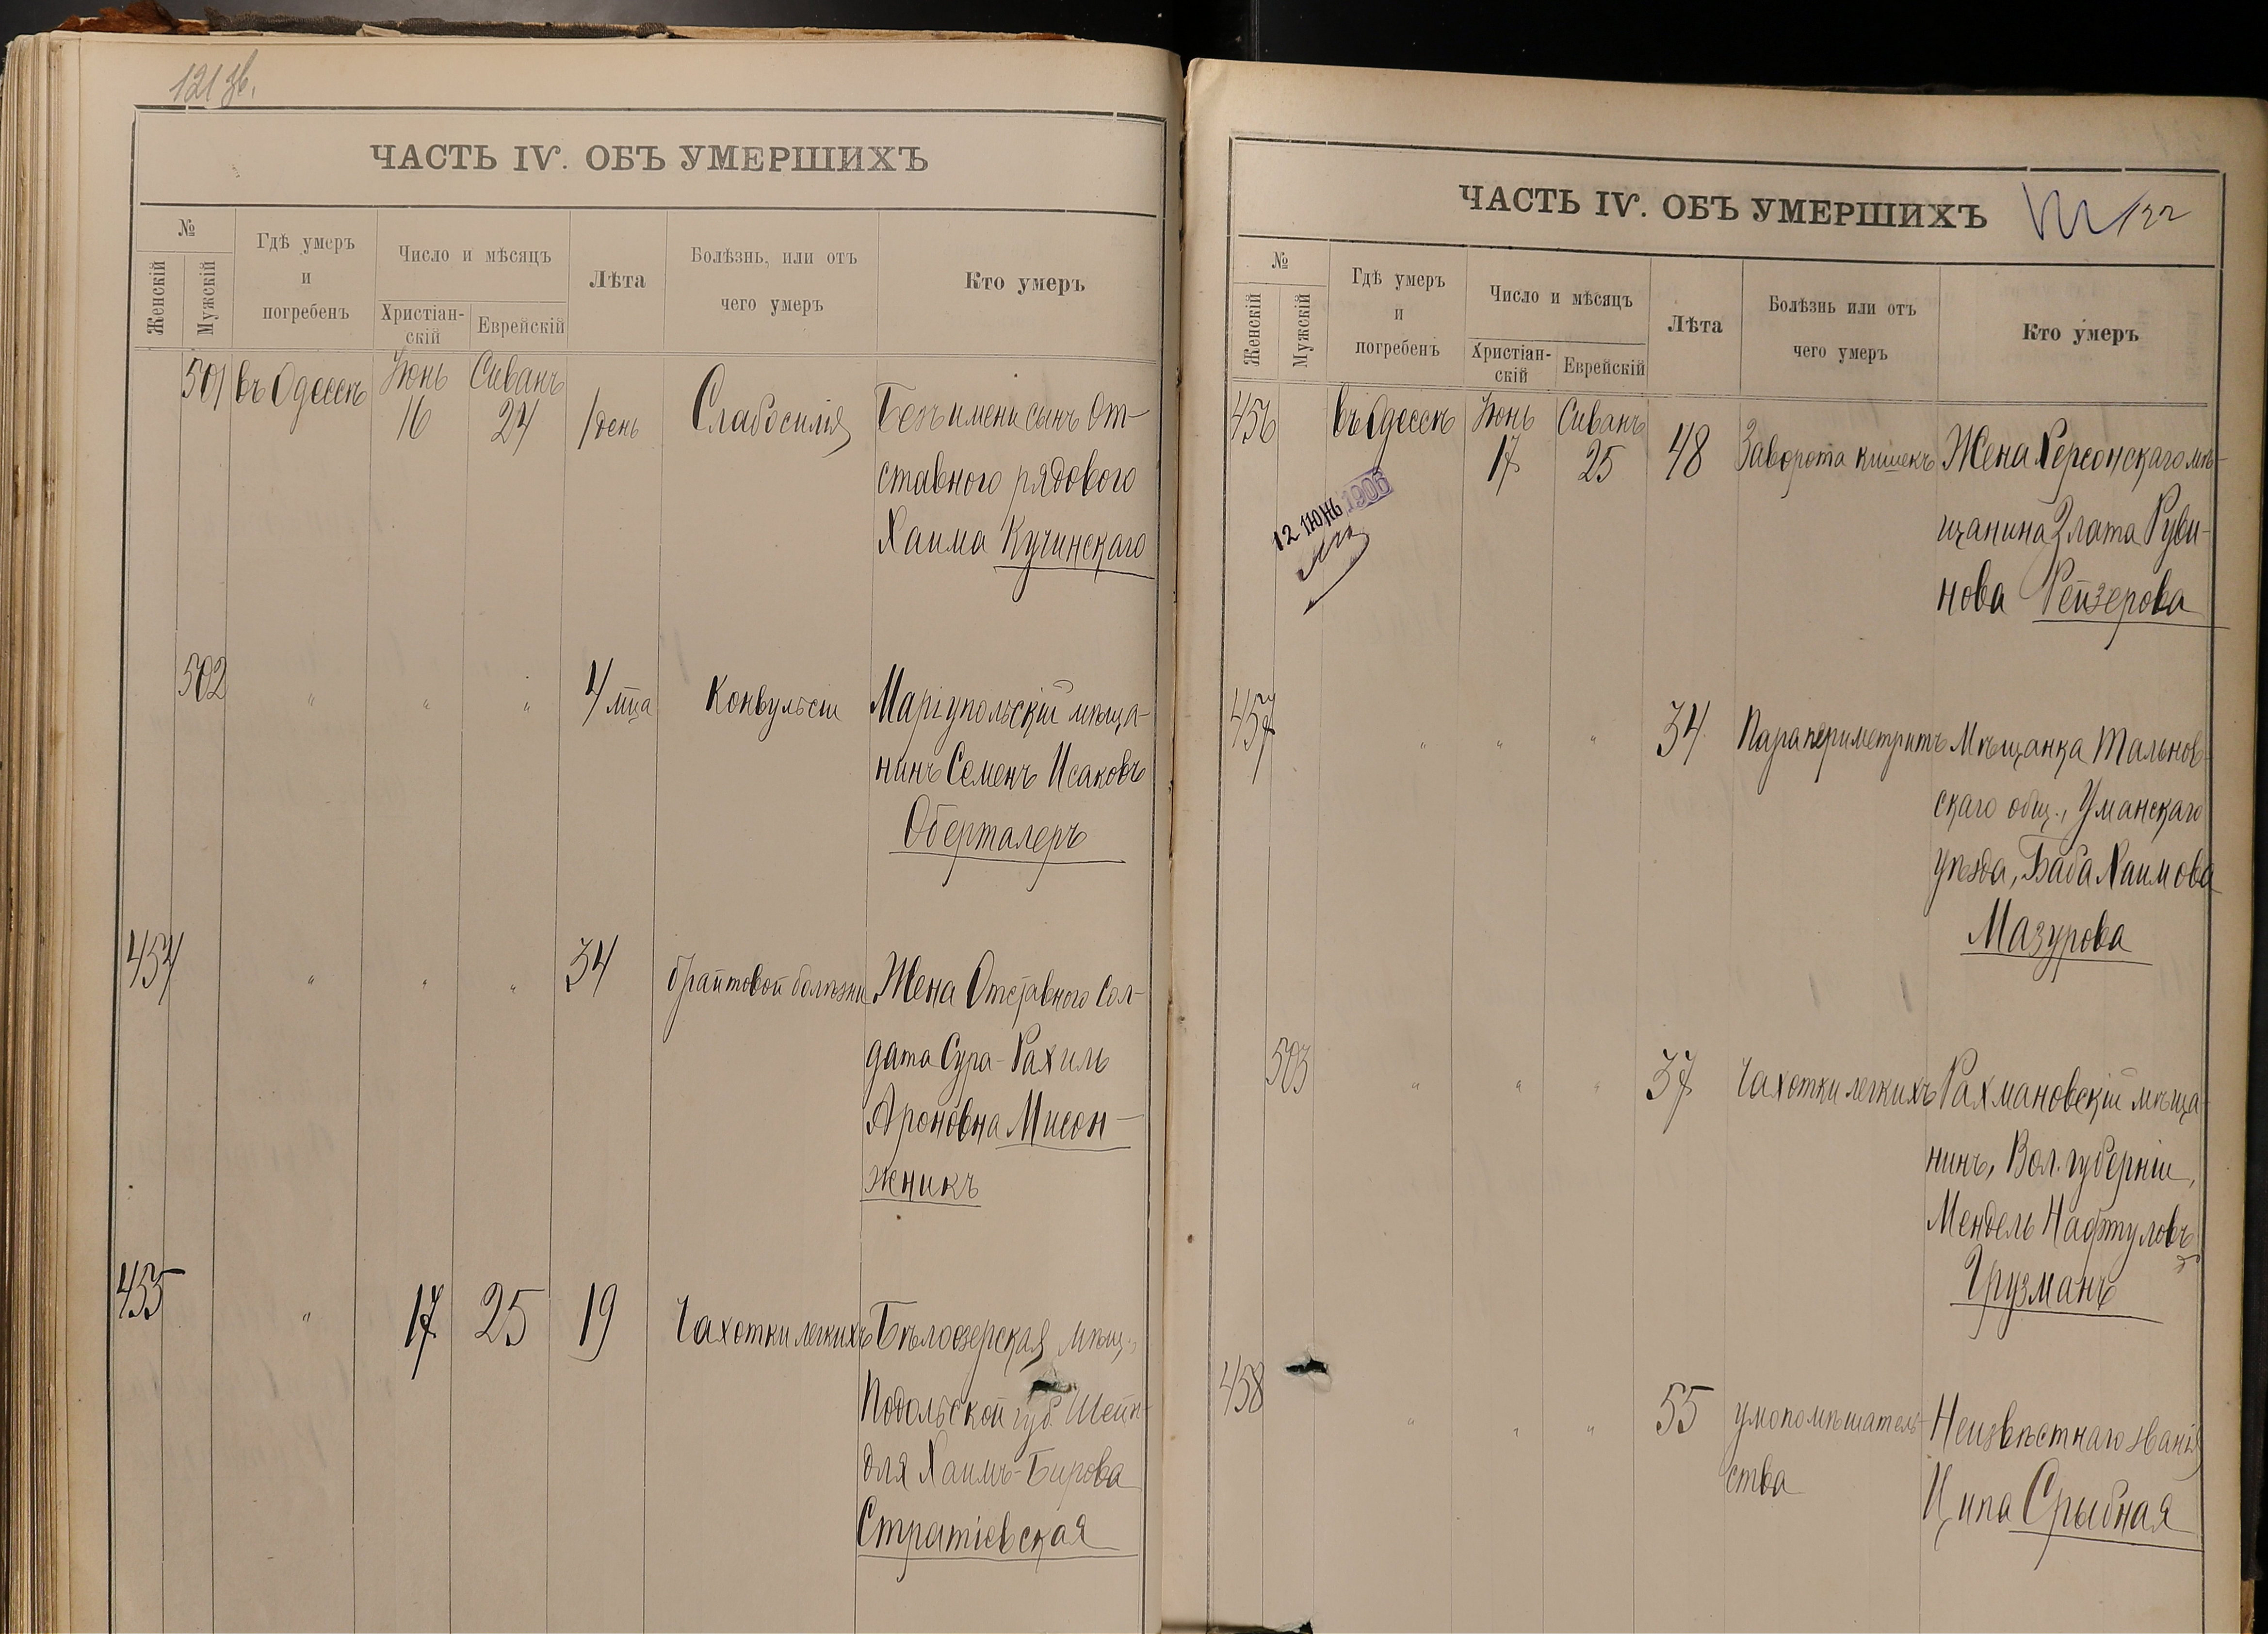 121 зв.
ЧАСТЬ IV. ОБЪ УМЕРШИХЪ
№
Женскій
Мужскій
Гдѣ умеръ
и
погребенъ
Число и мѣсяцъ
Христіан-
скій
Еврейскій
Лѣта
Болѣзнь, или отъ
чего умеръ
Кто умеръ
501 въ Одессѣ Іюнь 16 Сиванъ 24 1 день Слабосилія Безъ имени сынъ От-
ставного рядового
Хаима Кучинскаго
502 " " " 4 мца Конвульсіи Маріупольскій мѣща-
нинъ Семенъ Исаковъ
Оберталеръ
454 " " " 34 брайтовой болѣзни Жена Отставного Сол-
дата Сура-Рахиль
Ароновна Мисон-
жникъ
455 " 17 25 19 Чахотки легкихъ Бѣлозерская мѣщ.,
Подольской губ. Шейн-
для Хаимъ-Бирова
Стратіевская
ЧАСТЬ IV. ОБЪ УМЕРШИХЪ
122
№
Женскій
Мужскій
Гдѣ умеръ
и
погребенъ
Число и мѣсяцъ
Христіан-
скій
Еврейскій
Лѣта
Болѣзнь или отъ
чего умеръ
Кто умеръ
456 въ Одессѣ Іюнь 17 Сиванъ 25 48 Заворота кишекъ Жена Херсонскаго мѣ-
щанина Злата Руви-
нова Рейзерова
12 ІЮНЬ 1906
457 " " " 34 Парапериметритъ Мѣщанка Тальнов-
скаго общ., Уманскаго
уѣзда, Баба Хаимова
Мазурова
503 " " " 37 Чахотки легкихъ Рахмановскій мѣща-
нинъ, Вол. губерніи,
Мендель Нафтуловъ
Грузманъ
458 " " " 55 умопомѣшатель- Неизвѣстнаго званія
ства Ципа Срыбная